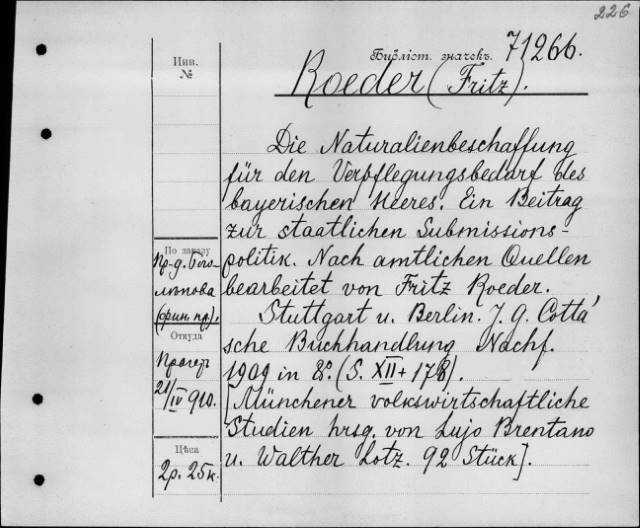 226
Инв.
№
Библіот. значекъ. 71266.
Roeder (Fritz).
Die Naturalienbeschaffung
für den Verpflegungsbedarf des
bayerischen Heeres. Ein Beitrag
zur staatlichen Submissions-
politik. Nach amtlichen Quellen
bearbeitet von Fritz Roeder.
Stuttgart u. Berlin. J. G. Cotta'
sche Buchhandlung Nachf.
1909 in 8°. (S. XII + 178).
[Münchener volkswirtschaftliche
Studien hrsg. von Lujo Brentano
u. Walther Lotz. 92 Stück].
По заказу
Пр-д. Бого
лѣпова
(фин. пр).
Откуда
21/IV 910.
Цѣна
2р. 25к.